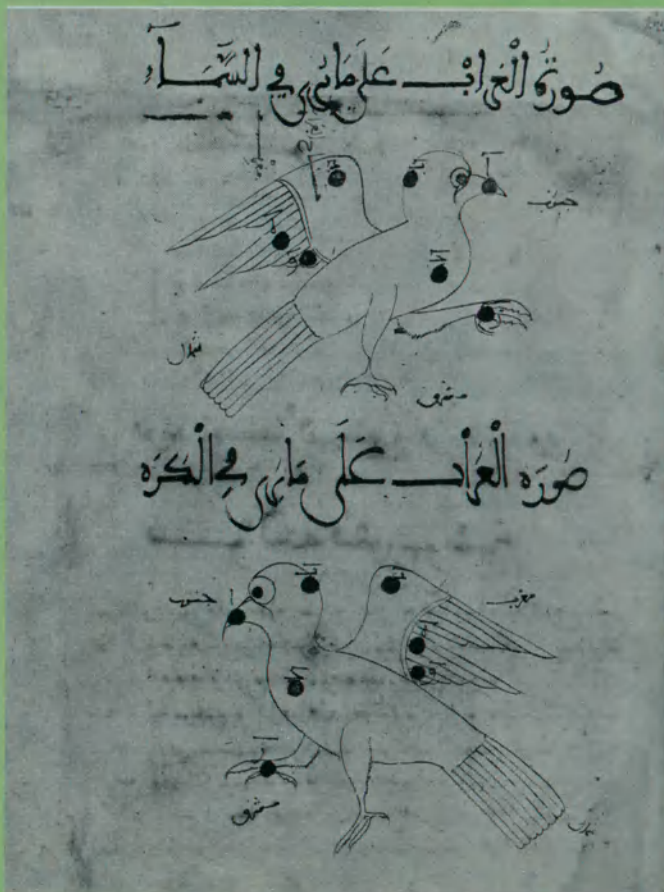 صُورَةُ الْغُرَابْ عَلَى مَا يُرَى فِي السَّمَآءِ
جنوب
شمال
مشرق
صُورَة الْغُرَاب عَلَى مَا يُرَى فِي الْكُرَة
جنوب
مغرب
مشرق
شمال